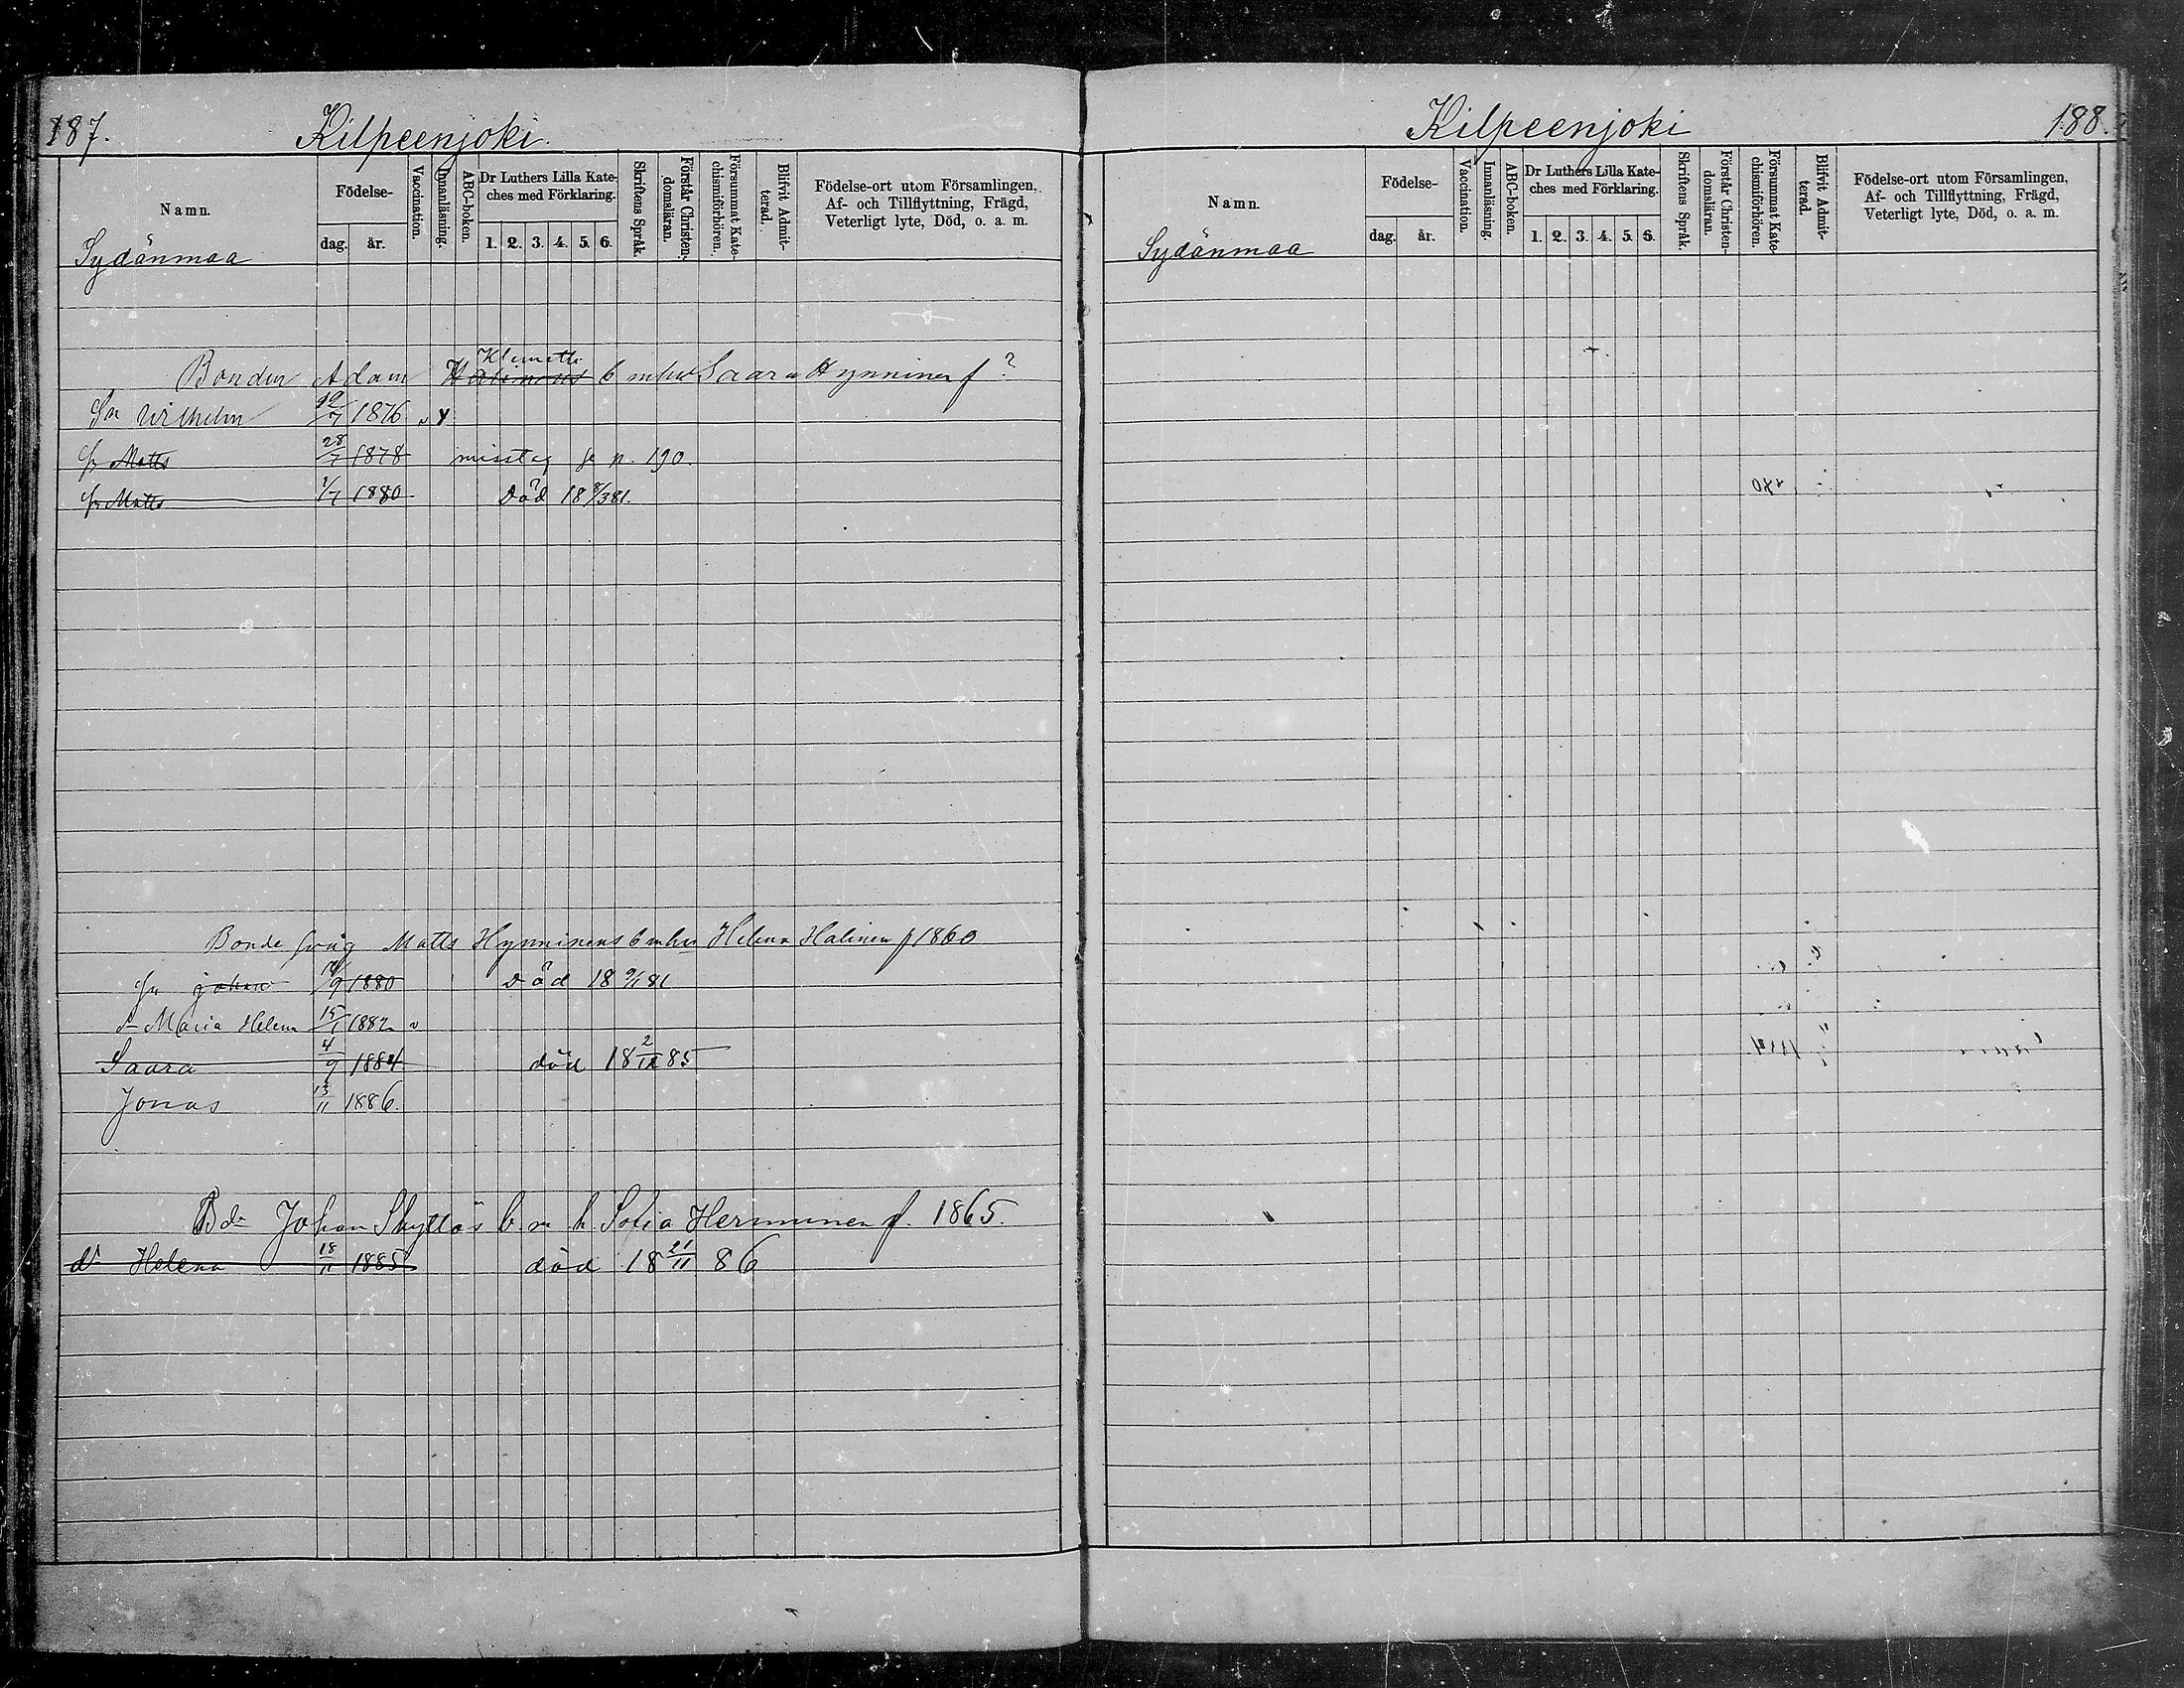 187.
Kilpeenjoki.
Namn.
Födelse-
dag.
år.
Vaccination.
Innanläsning.
ABC-boken.
Dr Luthers Lilla Kate-
ches med Förklaring.
1. 2. 3. 4. 5. 6.
Skriftens Språk.
Förstår Christen-
domsläran.
Försummat Kate-
chismiförhören.
Blifvit Admit-
terad.
Födelse-ort utom Församlingen,
Af- och Tillflyttning, Frägd,
Veterligt lyte, Död, o. a. m.
Sydänmaa
Klemetti
Bonden Adam b m hu Saara Hynninen f ?
Sn Wilhelm 19/7 1876
Sn Matts 28/7 1878 misstag se p. 190.
Sn Matts 1/7 1880 Död 18 8/3 81.
Bonde Matts Hynninens b m hu Helena Halinen f 1860
Sn Johan /9 1880 Död 18 9/1 81
dr Maria Helena 15/1 1882
Saara 4/9 1884 död 18 2/12 85
Jonas 13/11 1886.
Bdn Johan Skyttäs b. m h. Sofia Hermunen f. 1865.
dr Helena 18/11 1885 död 18 21/11 86
Kilpeenjoki
188.
Namn.
Födelse-
dag.
år.
Vaccination.
Innanläsning.
ABC-boken.
Dr Luthers Lilla Kate-
ches med Förklaring.
1. 2. 3. 4. 5. 6.
Skriftens Språk.
Förstår Christen-
domsläran.
Försummat Kate-
chismiförhören.
Blifvit Admit-
terad.
Födelse-ort utom Församlingen,
Af- och Tillflyttning, Frägd,
Veterligt lyte, Död, o. a. m.
Sydänmaa